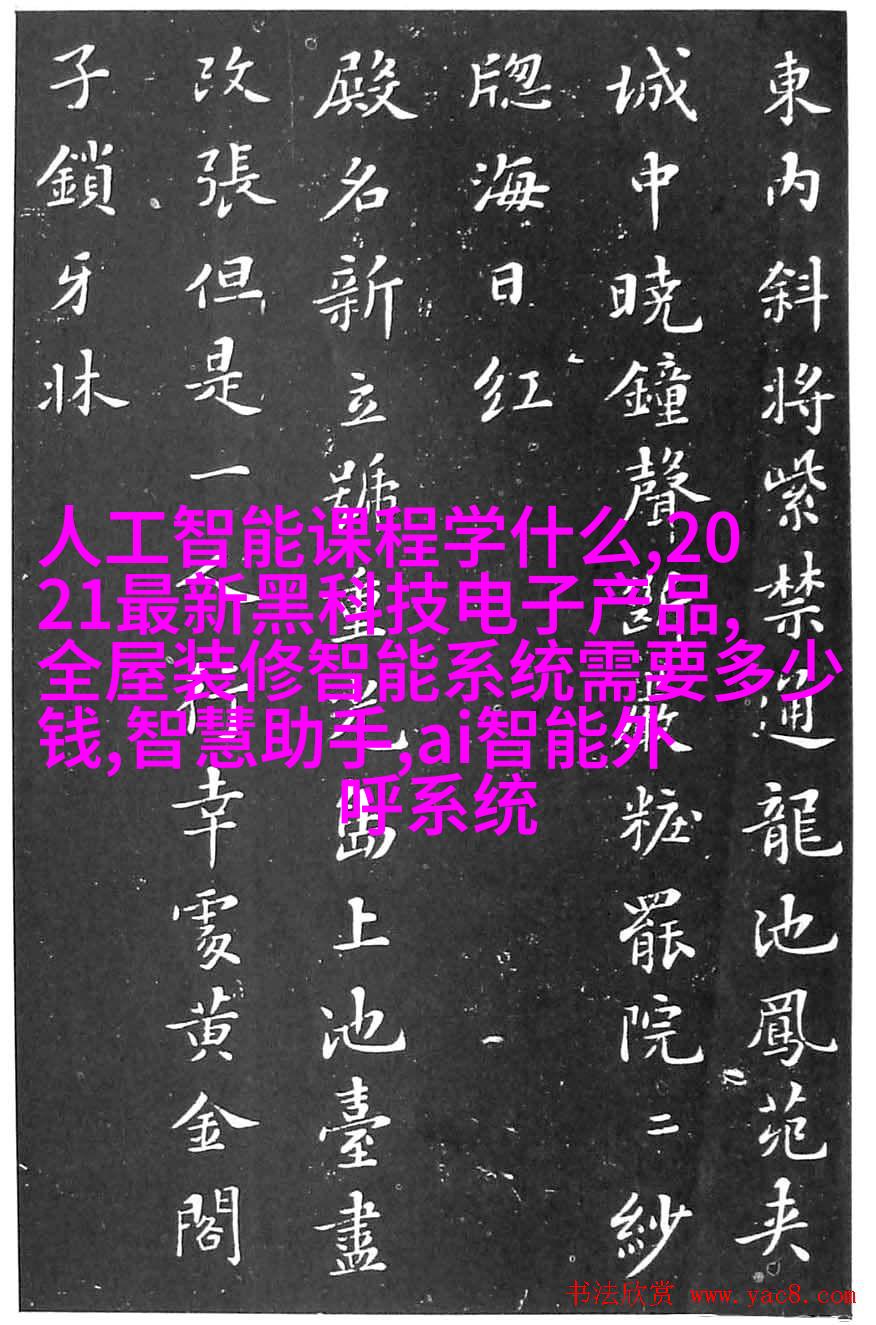 東内斜將紫禁通龍池鳳苑夾
城中曉鐘聲斷嚴粧罷院二紗
牕海日紅
殿名新立號重光島上池臺盡
改張但是一行幸處黃金閣
子鎖牙牀
人工智能课程学什么,20
21最新黑科技电子产品,
全屋装修智能系统需要多少
钱,智慧助手,ai智能外
呼系统
书法欣赏 www.yac8.com